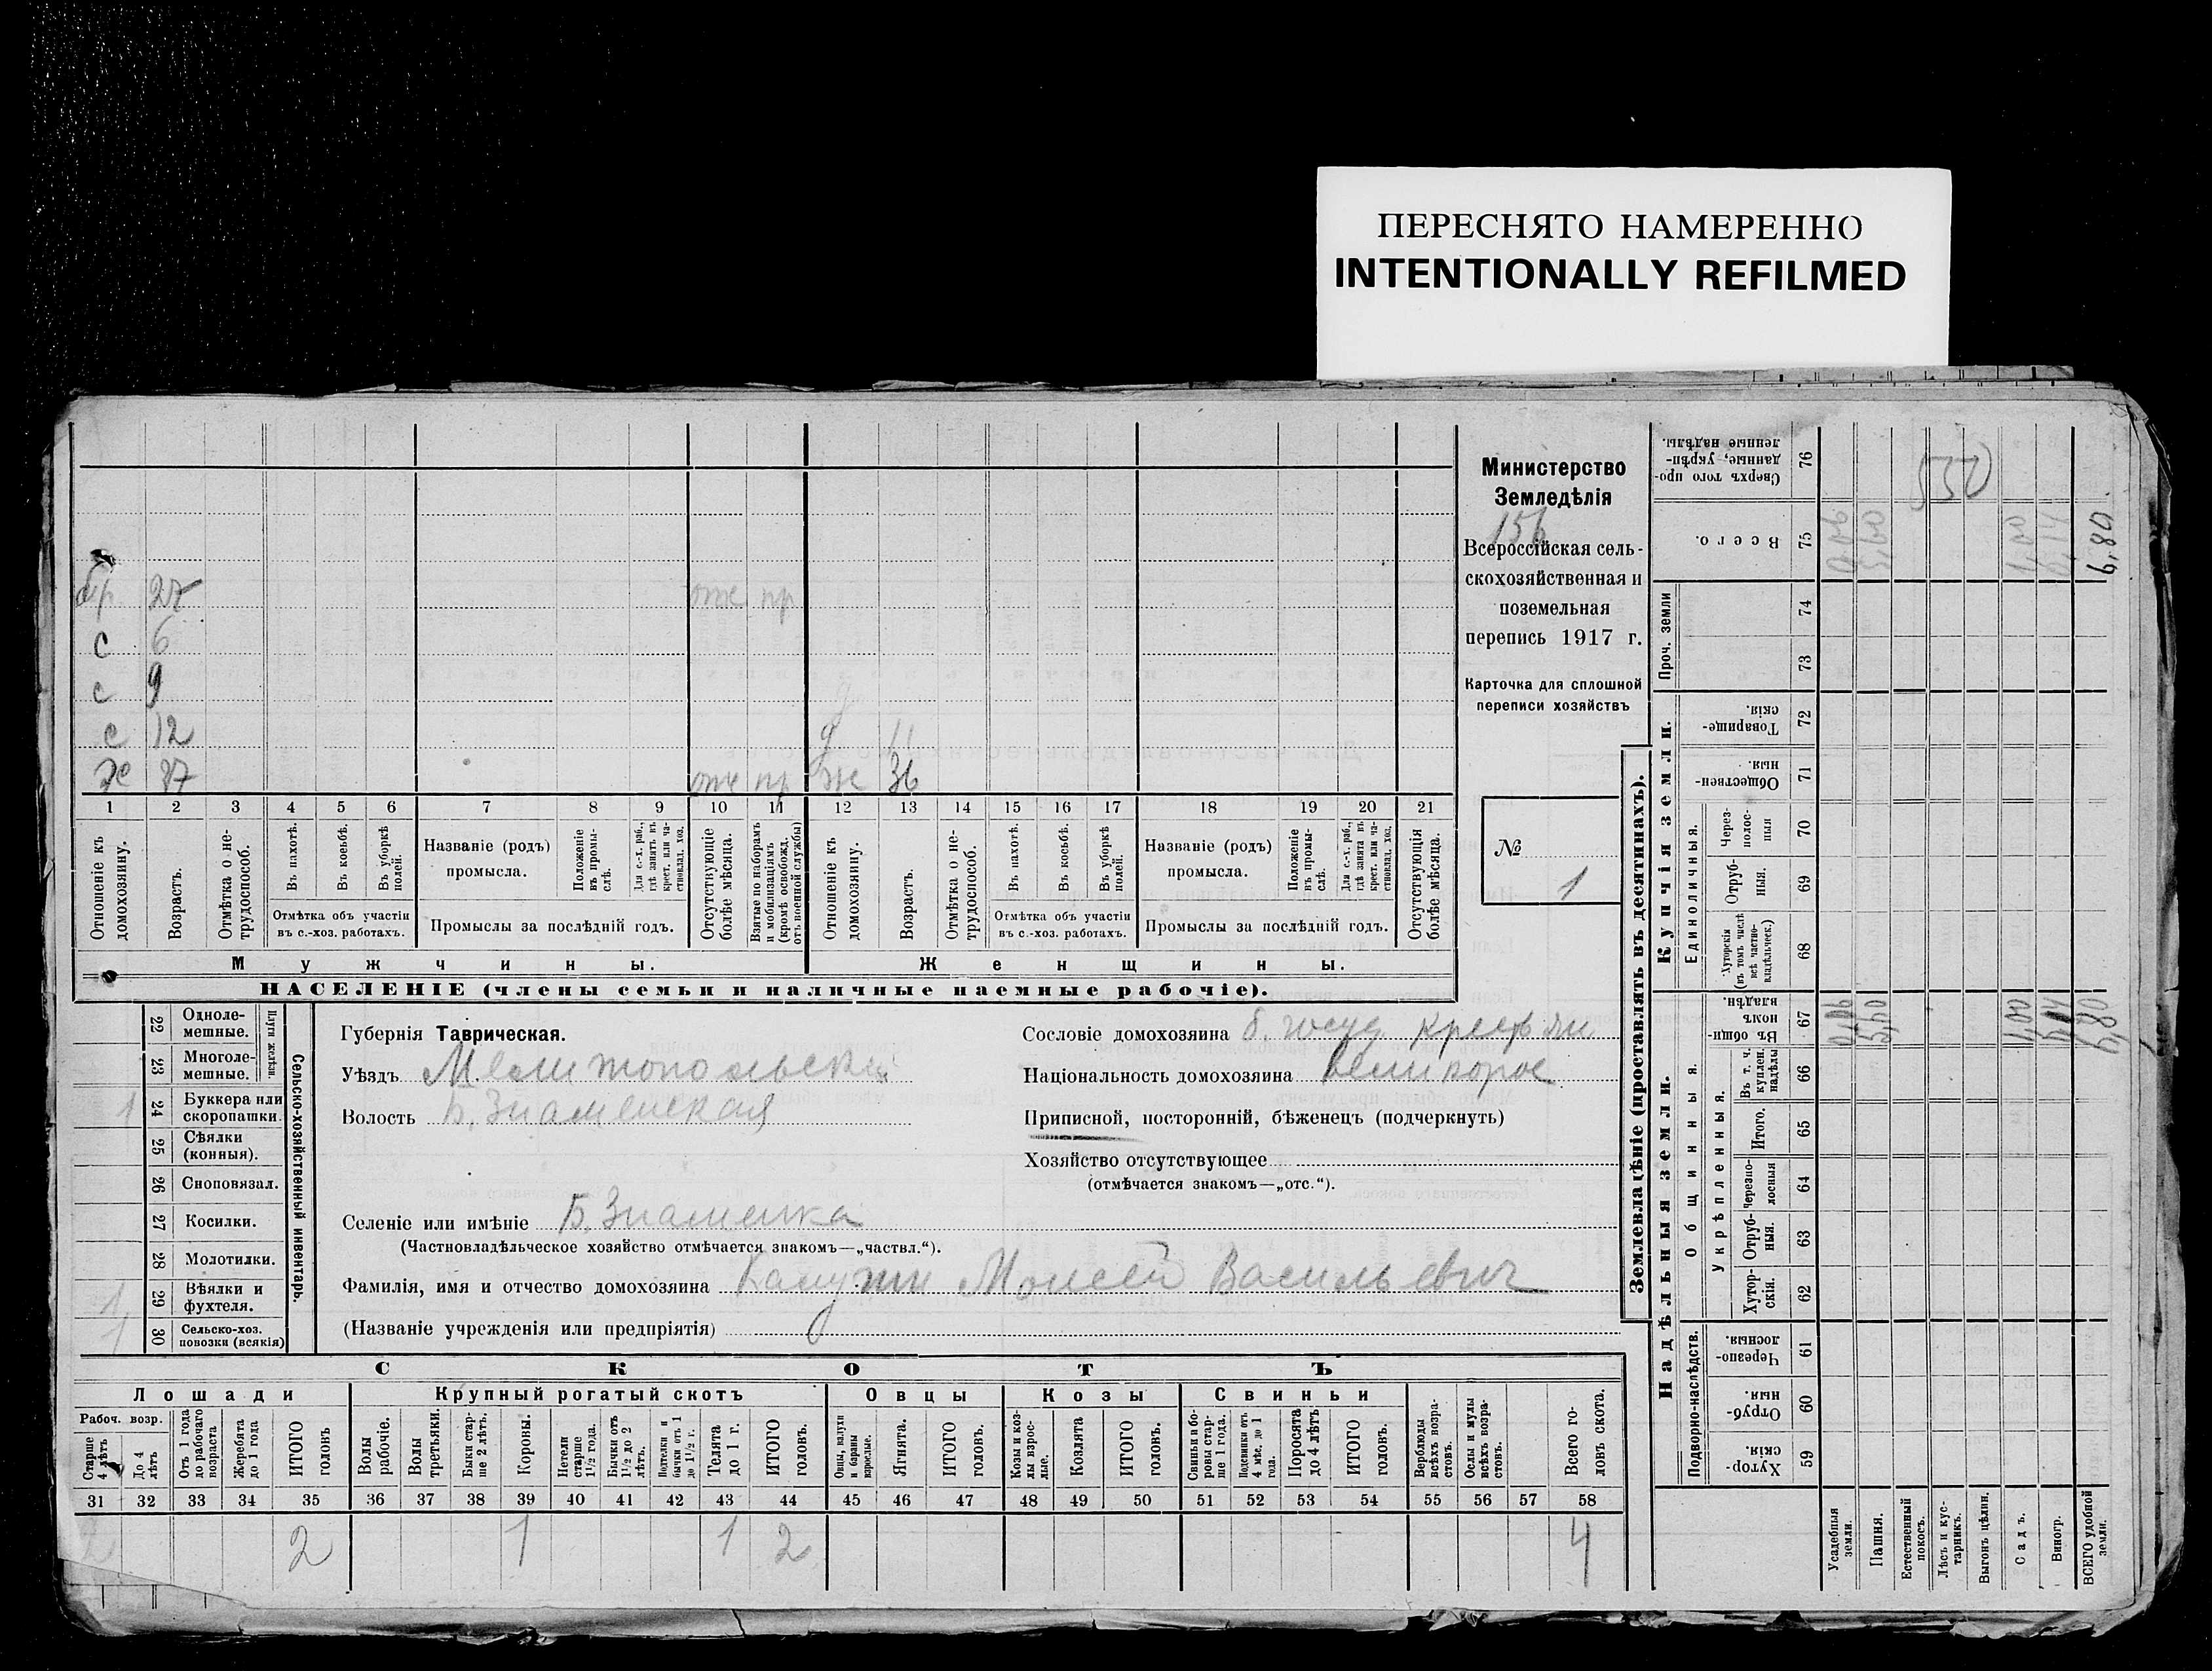 ПЕРЕСНЯТО НАМЕРЕННО
INTENTIONALLY REFILMED
Министерство
Земледѣлія
156
Всероссійская сель-
скохозяйственная и
поземельная
перепись 1917 г.
Карточка для сплошной
переписи хозяйствъ
№
1
бр 27 отс пр
с 6
с 9
с 12 д 11
37 пр ж 36
1 2 3 4 5 6 7 8 9 10 11 12 13 14 15 16 17 18 19 20 21
Отношеніе къ домохозяину.
Возрастъ.
Отмѣтка о не-трудоспособ.
Въ пахотѣ.
Въ косьбѣ.
Въ уборкѣ полей.
Отмѣтка объ участіи
въ с.-хоз. работахъ.
Названіе (родъ)
промысла.
Положеніе въ промы-слѣ.
Для с.-х. раб., гдѣ занятъ въ крест. или ча-стновлад. хоз.
Промыслы за послѣдній годъ.
Отсутствующіе болѣе мѣсяца.
Взятые по наборамъ и мобилизаціямъ (кромѣ освобожд. отъ военной службы)
Отношеніе къ домохозяину.
Возрастъ.
Отмѣтка о не-трудоспособ.
Въ пахотѣ.
Въ косьбѣ.
Въ уборкѣ полей.
Отмѣтка объ участіи
въ с.-хоз. работахъ.
Названіе (родъ)
промысла.
Положеніе въ промы-слѣ.
Для с.-х. раб., гдѣ занята въ крест. или ча-стновлад. хоз.
Промыслы за послѣдній годъ.
Отсутствующія болѣе мѣсяца.
Мужчины. Женщины.
НАСЕЛЕНІЕ (члены семьи и наличные наемные рабочіе).
Сельско-хозяйственный инвентарь.
Плуги желѣзн.
22 Одноле-мешные.
23 Многоле-мешные.
1 24 Буккера или скоропашки.
25 Сѣялки (конныя).
26 Сноповязал.
27 Косилки.
28 Молотилки.
1 29 Вѣялки и фухтеля.
1 30 Сельско-хоз. повозки (всякія)
Губернія Таврическая.
Уѣздъ Мелитопольскій
Волость Б. Знаменская
Селеніе или имѣніе Б. Знаменка
(Частновладѣльческое хозяйство отмѣчается знакомъ—„частвл.“).
Фамилія, имя и отчество домохозяина Моисей Васильевич
(Названіе учрежденія или предпріятія)
Сословіе домохозяина б. госуд. крестьян
Національность домохозяина великорос
Приписной, посторонній, бѣженецъ (подчеркнуть)
Хозяйство отсутствующее
(отмѣчается знакомъ—„отс.“).
СКОТЪ
Лошади Крупный рогатый скотъ Овцы Козы Свиньи
Рабоч. возр.
Старше 4 лѣтъ
До 4 лѣтъ
Отъ 1 года до рабочаго возраста
Жеребята до 1 года
ИТОГО головъ
Волы рабочіе.
Волы третьяки.
Быки стар-ше 2 лѣтъ.
Коровы.
Нетели старше 1½ года.
Бычки отъ 1½ до 2 лѣтъ.
Подтелки и бычки отъ 1 до 1½ г.
Телята до 1 г.
ИТОГО головъ.
Овцы, валухи и бараны взрослые.
Ягнята.
ИТОГО головъ.
Козы и коз-лы взрос-лые.
Козлята
ИТОГО головъ.
Свиньи и бо-ровы стар-ше 1 года.
Подсвинки отъ 4 мѣс. до 1 года.
Поросята до 4 лѣтъ
ИТОГО головъ.
Верблюды всѣхъ возра-стовъ.
Ослы и мулы всѣхъ возра-стовъ.
Всего го-ловъ скота.
31 32 33 34 35 36 37 38 39 40 41 42 43 44 45 46 47 48 49 50 51 52 53 54 55 56 57 58
2 2 1 1 2 4
Землевладѣніе (проставлять въ десятинахъ).
Купчія земли.
Надѣльныя земли.
Сверхъ того про-данные, укрѣп-ленные надѣлы. 76 550
Всего. 75
Проч. земли 74 73
Товарище-скія. 72
Обществен-ныя 71
Единоличныя.
Через-полос-ныя 70
Отруб-ныя. 69
Хуторскія (въ томъ числѣ всѣ частно-владѣльческ.) 68
Общинныя.
Въ общин-номъ владѣн. 67
Укрѣпленныя.
Въ т. ч. куплен. надѣлы 66
Итого. 65
Черезпо-лосныя 64
Отруб-ныя. 63
Хутор-скія. 62
Подворно-наслѣдств.
Черезпо-лосныя 61
Отруб-ныя. 60
Хутор-скія. 59
Усадебныя земли.
Пашня.
Естественный покосъ.
Лѣсъ и кус-тарникъ.
Выгонъ цѣлин.
Садъ. 1,00 1,00
Виногр.
ВСЕГО удобной земли. 6,80 6,80